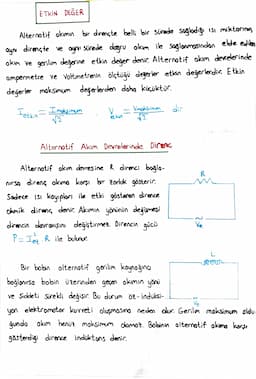 ETKİN DEĞER
Alternatif akımın bir dirençte belli bir sürede sağladığı ısı miktarının,
aynı dirençte ve aynı sürede doğru akım ile sağlanmasından elde edilen
akım ve gerilim değerine etkin değer denir. Alternatif akım devrelerinde
ampermetre ve Voltmetrenin ölçtüğü değerler etkin değerlerdir. Etkin
değerler maksimum değerlerden daha küçüktür.
I etkin = I maksimum / √2 , V etkin = V maksimum / √2 dir
Alternatif Akım Devrelerinde Direnç
Alternatif akım devresine R direnci bağla-
nırsa direnç akıma karşı bir zorluk gösterir.
Sadece ısı kayıpları ile etki gösteren dirence
ohmik direnç denir. Akımın yönünün değişmesi
direncin davranışını değiştirmez. Direncin gücü
P = I²et . R ile bulunur.
R
Ve
Bir bobin alternatif gerilim kaynağına
bağlanırsa bobin üzerinden geçen akımın yönü
ve şiddeti sürekli değişir. Bu durum öz-indüksi-
yon elektromotor kuvveti oluşmasına neden olur. Gerilim maksimum oldu-
ğunda akım henüz maksimum olamaz. Bobinin alternatif akıma karşı
gösterdiği dirence indüktans denir.
L
Ve